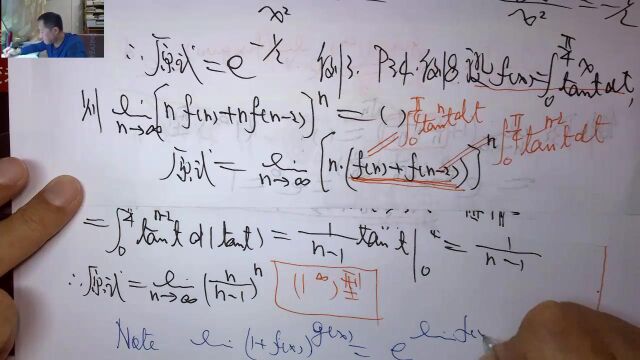 x² x² = -1/2
∴原式 = e^{-1/2} 例13. P34. 例18. 设f(x)=∫_0^{π/4} tan^x t dt,
则 lim_{n→∞} [n f(n)+n f(n-2)]^n = ( ) ∫_0^{π/4} tan^n t dt ∫_0^{π/4} tan^{n-2} t dt
原式 = lim_{n→∞} [n·(f(n)+f(n-2))]^n
= ∫_0^{π/4} tan^{n-2} t d(tan t) = 1/(n-1) tan^{n-1} t |_0^{π/4} = 1/(n-1)
∴原式 = lim_{n→∞} (n/(n-1))^n (1^∞)型
Note lim (1+f(x))^{g(x)} = e^{lim f(x)